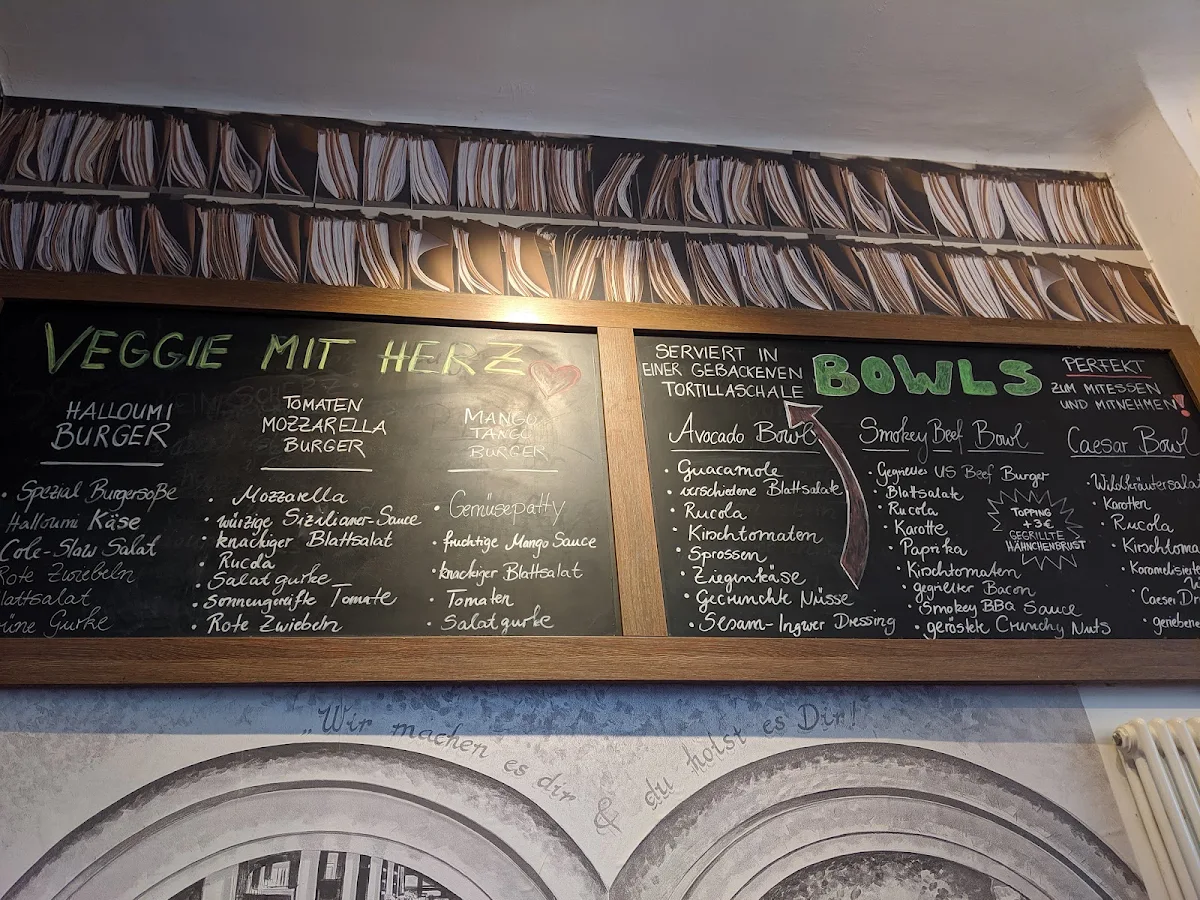 VEGGIE MIT HERZ
HALLOUMI
BURGER
Spezial Burgersoße
Halloumi Käse
Cole-Slaw Salat
Rote Zwiebeln
Blattsalat
Gurke
TOMATEN
MOZZARELLA
BURGER
• Mozzarella
• würzige Sizilianer-Sauce
• knackiger Blattsalat
• Rucola
• Salatgurke
• Sonnengereifte Tomate
• Rote Zwiebeln
MANGO
TANGO
BURGER
• Gemüsepatty
• fruchtige Mango Sauce
• knackiger Blattsalat
• Tomaten
• Salatgurke
SERVIERT IN
EINER GEBACKENEN
TORTILLASCHALE
BOWLS
PERFEKT
ZUM MITESSEN
UND MITNEHMEN!
Avocado Bowl
• Guacamole
• verschiedene Blattsalate
• Rucola
• Kirschtomaten
• Sprossen
• Ziegenkäse
• Gecrunchte Nüsse
• Sesam-Ingwer Dressing
Smokey Beef Bowl
• Gegrilltes US Beef Burger
• Blattsalate
• Rucola
• Karotte
• Paprika
• Kirschtomaten
• gegrillter Bacon
• Smokey BBQ Sauce
• geröstete Crunchy Nuts
TOPPING
+3€
GEGRILLTE
HÄHNCHENBRUST
Caesar Bowl
• Wildkräutersalat
• Karotten
• Rucola
• Kirschtoma
• Karamelisierte
• Caesar Dr
• geriebene
"Wir machen es dir & du holst es Dir!